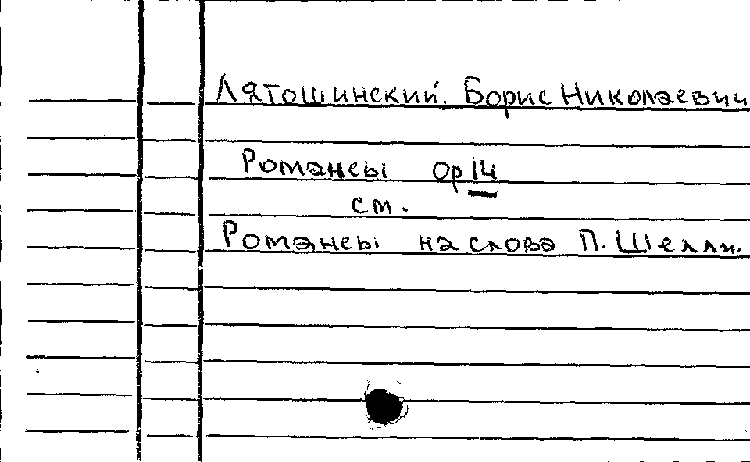 Лятошинский. Борис Николаевич
Романсы ор 14
см.
Романсы на слова П. Шелли.